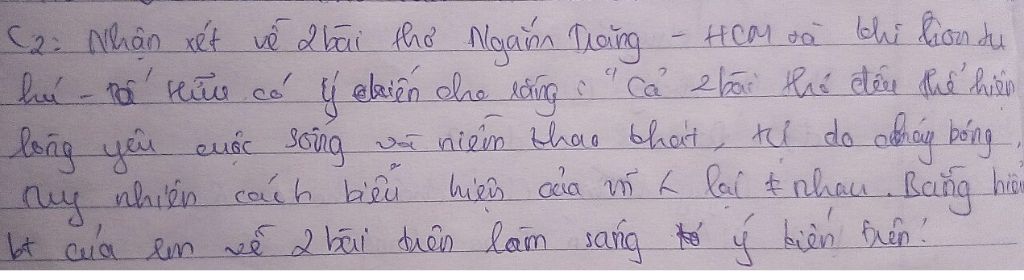 C2: Nhận xét về 2 bài thơ Ngắm Trăng - HCM và khi con tu
hú - Tố Hữu có ý kiến cho rằng: "Cả 2 bài thơ đều thể hiện
lòng yêu cuộc sống và niềm khao khát, tự do cháy bỏng,
tuy nhiên cách biểu hiện của mỗi lại ≠ nhau. Bằng hiểu
bt của em về 2 bài trên làm sáng tỏ ý kiến trên!